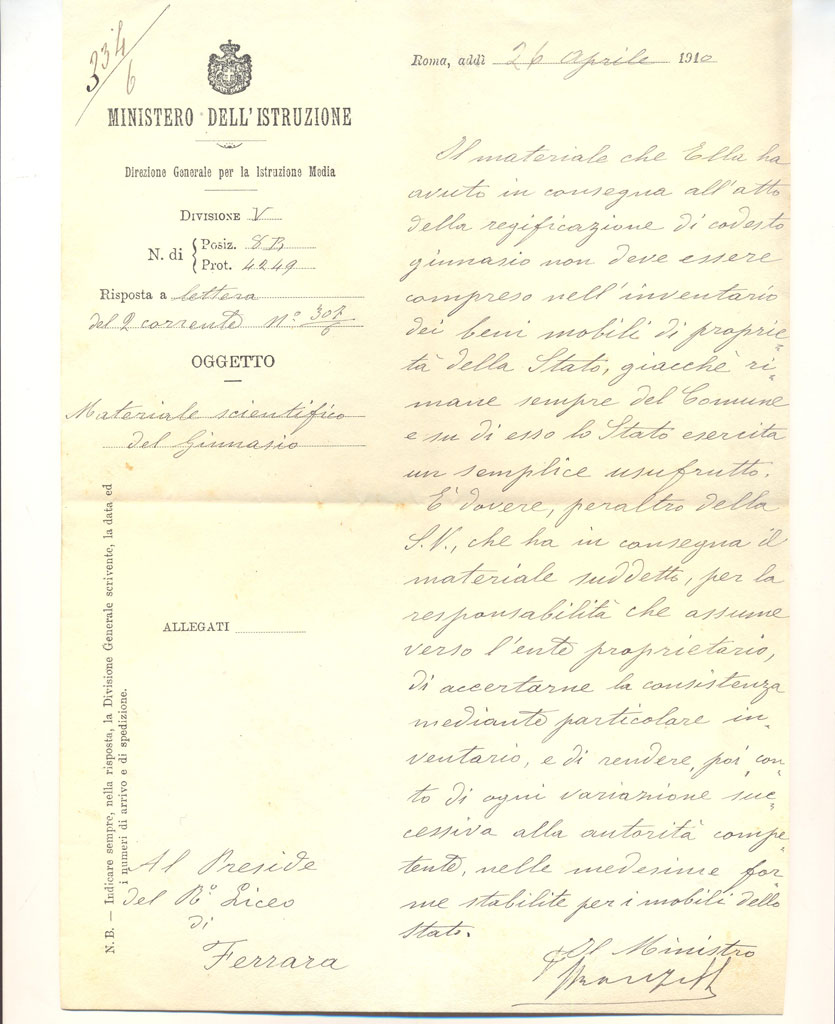 334/6
MINISTERO DELL'ISTRUZIONE
Direzione Generale per la Istruzione Media
DIVISIONE V
N. di
Posiz. 8 B.
Prot. 4249
Risposta a lettera
del 2 corrente N.º 307/6
OGGETTO
Materiale scientifico
del Ginnasio
ALLEGATI
N. B. — Indicare sempre, nella risposta, la Divisione Generale scrivente, la data ed
i numeri di arrivo e di spedizione.
Al Preside
del Rº Liceo
di
Ferrara
Roma, addì 26 Aprile 1910
Il materiale che Ella ha
avuto in consegna all'atto
della regificazione di codesto
ginnasio non deve essere
compreso nell'inventario
dei beni mobili di proprie-
tà della Stato, giacchè ri-
mane sempre del Comune
e su di esso lo Stato esercita
un semplice usufrutto.
E' dovere, peraltro della
S.V., che ha in consegna il
materiale suddetto, per la
responsabilità che assume
verso l'ente proprietario,
di accertarne la consistenza
mediante particolare in-
ventario, e di rendere, poi con-
to di ogni variazione suc-
cessiva alla autorità compe-
tente, nelle medesime for-
me stabilite per i mobili dello
Stato.
Il Ministro